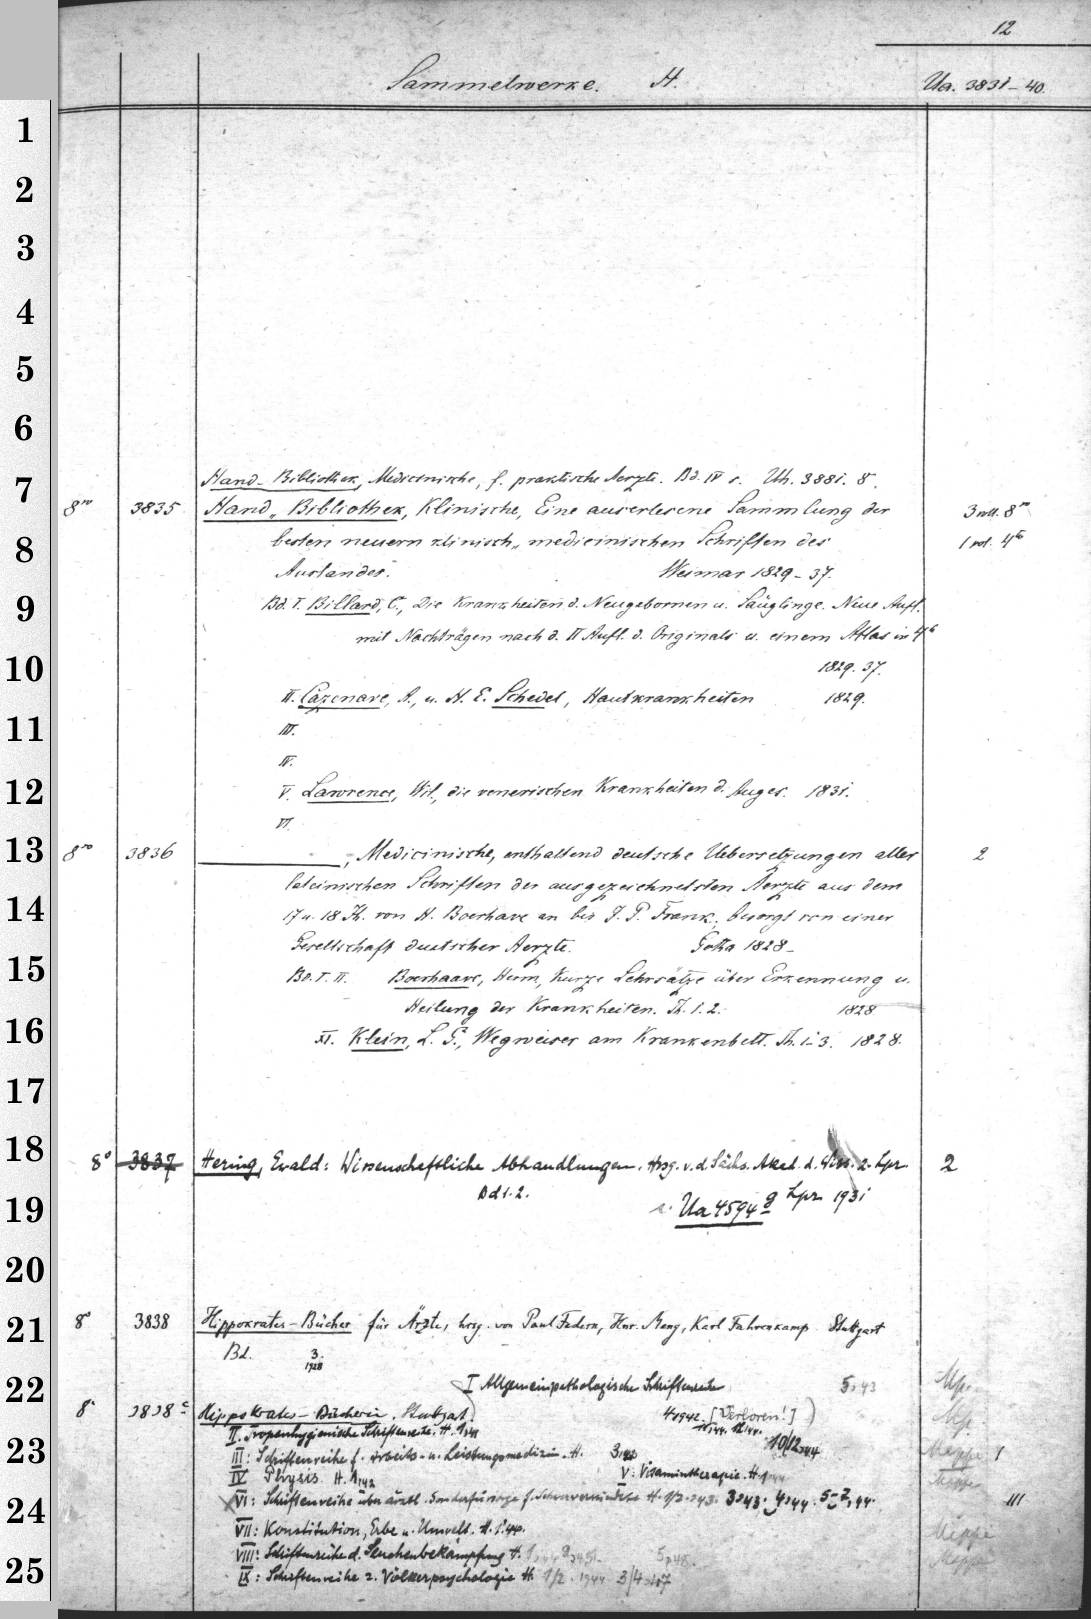 12
Sammelwerke. H. Ua. 3831-40.
1
2
3
4
5
6
7
8
9
10
11
12
13
14
15
16
17
18
19
20
21
22
23
24
25
Hand-Bibliothek, Medicinische, f. praktische Aerzte. Bd. IV s. Uh. 3881. 8.
8vo 3835 Hand-Bibliothek, Klinische, Eine auserlesene Sammlung der 3 voll. 8vo
besten neuern klinisch-medicinischen Schriften des 1 vol. 4to
Auslandes. Weimar 1829-37.
Bd. I. Billard, C., Die Krankheiten d. Neugebornen u. Säuglinge. Neue Aufl.
mit Nachträgen nach d. II Aufl. d. Originals u. einem Atlas in 4to
1829. 37.
II. Cazenave, A., u. H. E. Schedel, Hautkrankheiten 1829.
III.
IV.
V. Lawrence, Wil., die venerischen Krankheiten d. Auges. 1831.
VI.
8vo 3836 ——, Medicinische, enthaltend deutsche Uebersetzungen aller 2
lateinischen Schriften der ausgezeichnetsten Aerzte aus dem
17 u. 18 Jh. von H. Boerhave an bis J. P. Frank, besorgt von einer
Gesellschaft deutscher Aerzte. Gotha 1828-
Bd. I. II. Boerhaave, Herm, Kurze Lehrsätze über Erkennung u.
Heilung der Krankheiten. Th. 1. 2. 1828
XI. Klein, L. G., Wegweiser am Krankenbett. Th. 1-3. 1828.
8° 3837 Hering, Ewald: Wissenschaftliche Abhandlungen. Hrsg. v. d. Sächs. Akad. d. Wiss. z. Lpz. 2
Bd 1. 2. Lpz 1931
s. Ua 4594 g
8° 3838 Hippokrates-Bücher für Ärzte, hrsg. von Paul Federn, Hnr. Meng, Karl Fahrenkamp Stuttgart
Bd. 3.
1928
I Allgemeinpathologische Schriftenreihe 5,43 Mp.
8° 3838 c Hippokrates-Bücherei, Stuttgart 4,1942. [Verloren!] Mp.
II. Tropenhygienische Schriftenreihe. H. 1,41 11,44. 12,44. 10/12,44
III: Schriftenreihe f. Arbeits- u. Leistungsmedizin. H. 3,43 Mappe 1
IV Physis. H. 1,42 V: Vitamintherapie. H. 1,44 Mappe
VI: Schriftenreihe über ärztl. Sonderfürsorge f. Schwerverwundete H. 1/2,43. 3,43. 4,44. 5-7,44. III
VII: Konstitution, Erbe u. Umwelt. H. 1,44. Mappe
VIII: Schriftenreihe d. Seuchenbekämpfung H. 5,48. Mappe
IX: Schriftenreihe z. Völkerpsychologie H. 1/2. 1944. 3/4,47